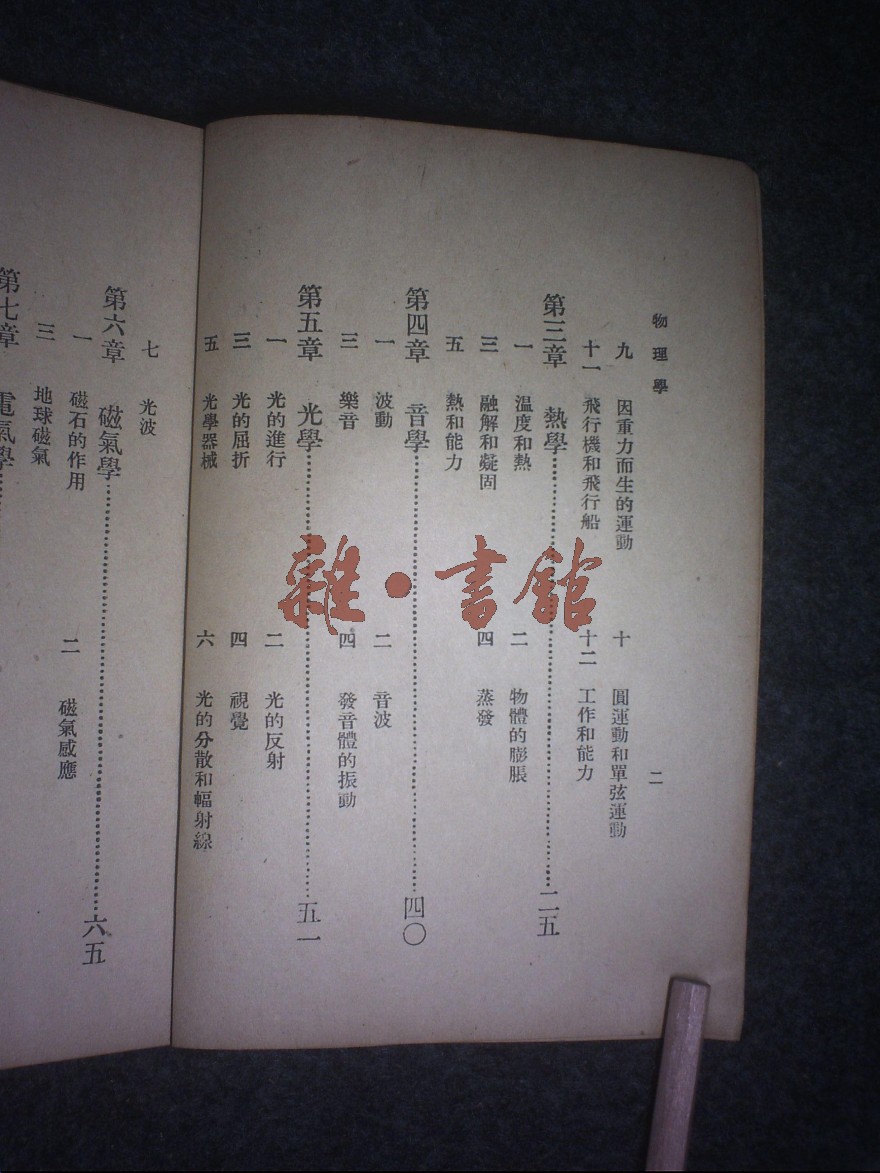 物理學
二
九 因重力而生的運動 十 圓運動和單弦運動
十一 飛行機和飛行船 十二 工作和能力
第三章 熱學……二五
一 溫度和熱 二 物體的膨脹
三 融解和凝固 四 蒸發
五 熱和能力
第四章 音學……四〇
一 波動 二 音波
三 樂音 四 發音體的振動
第五章 光學……五一
一 光的進行 二 光的反射
三 光的屈折 四 視覺
五 光學器械 六 光的分散和輻射線
七 光波
第六章 磁氣學……六五
一 磁石的作用 二 磁氣感應
三 地球磁氣
第七章 電氣學……
雜·書館